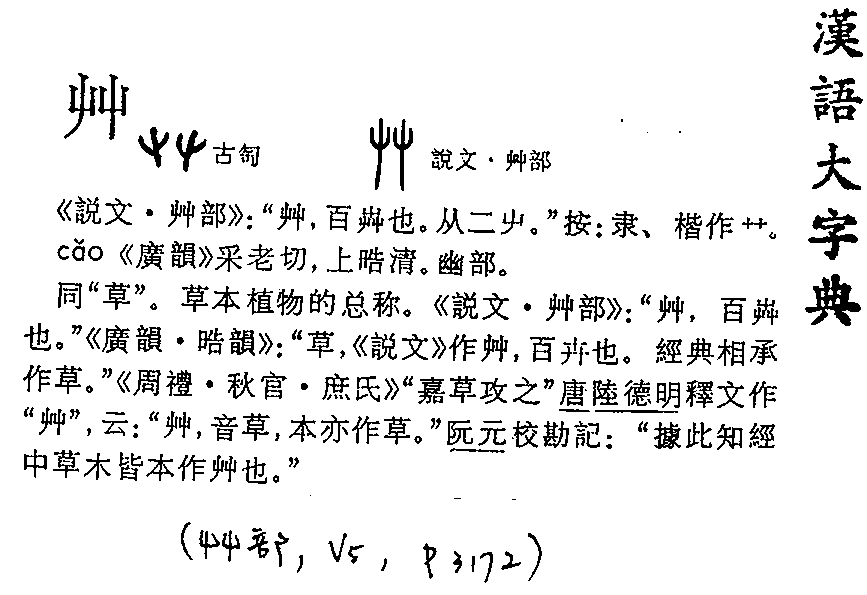 漢語大字典
艸
古匋
説文·艸部
《説文·艸部》：“艸，百芔也。从二屮。”按：隶、楷作艹。
cǎo《廣韻》采老切，上晧清。幽部。
同“草”。草本植物的总称。《説文·艸部》：“艸，百芔
也。”《廣韻·晧韻》：“草，《説文》作艸，百卉也。經典相承
作草。”《周禮·秋官·庶氏》“嘉草攻之”唐陸德明釋文作
“艸”，云：“艸，音草，本亦作草。”阮元校勘記：“據此知經
中草木皆本作艸也。”
（艸部，V5，P3172）